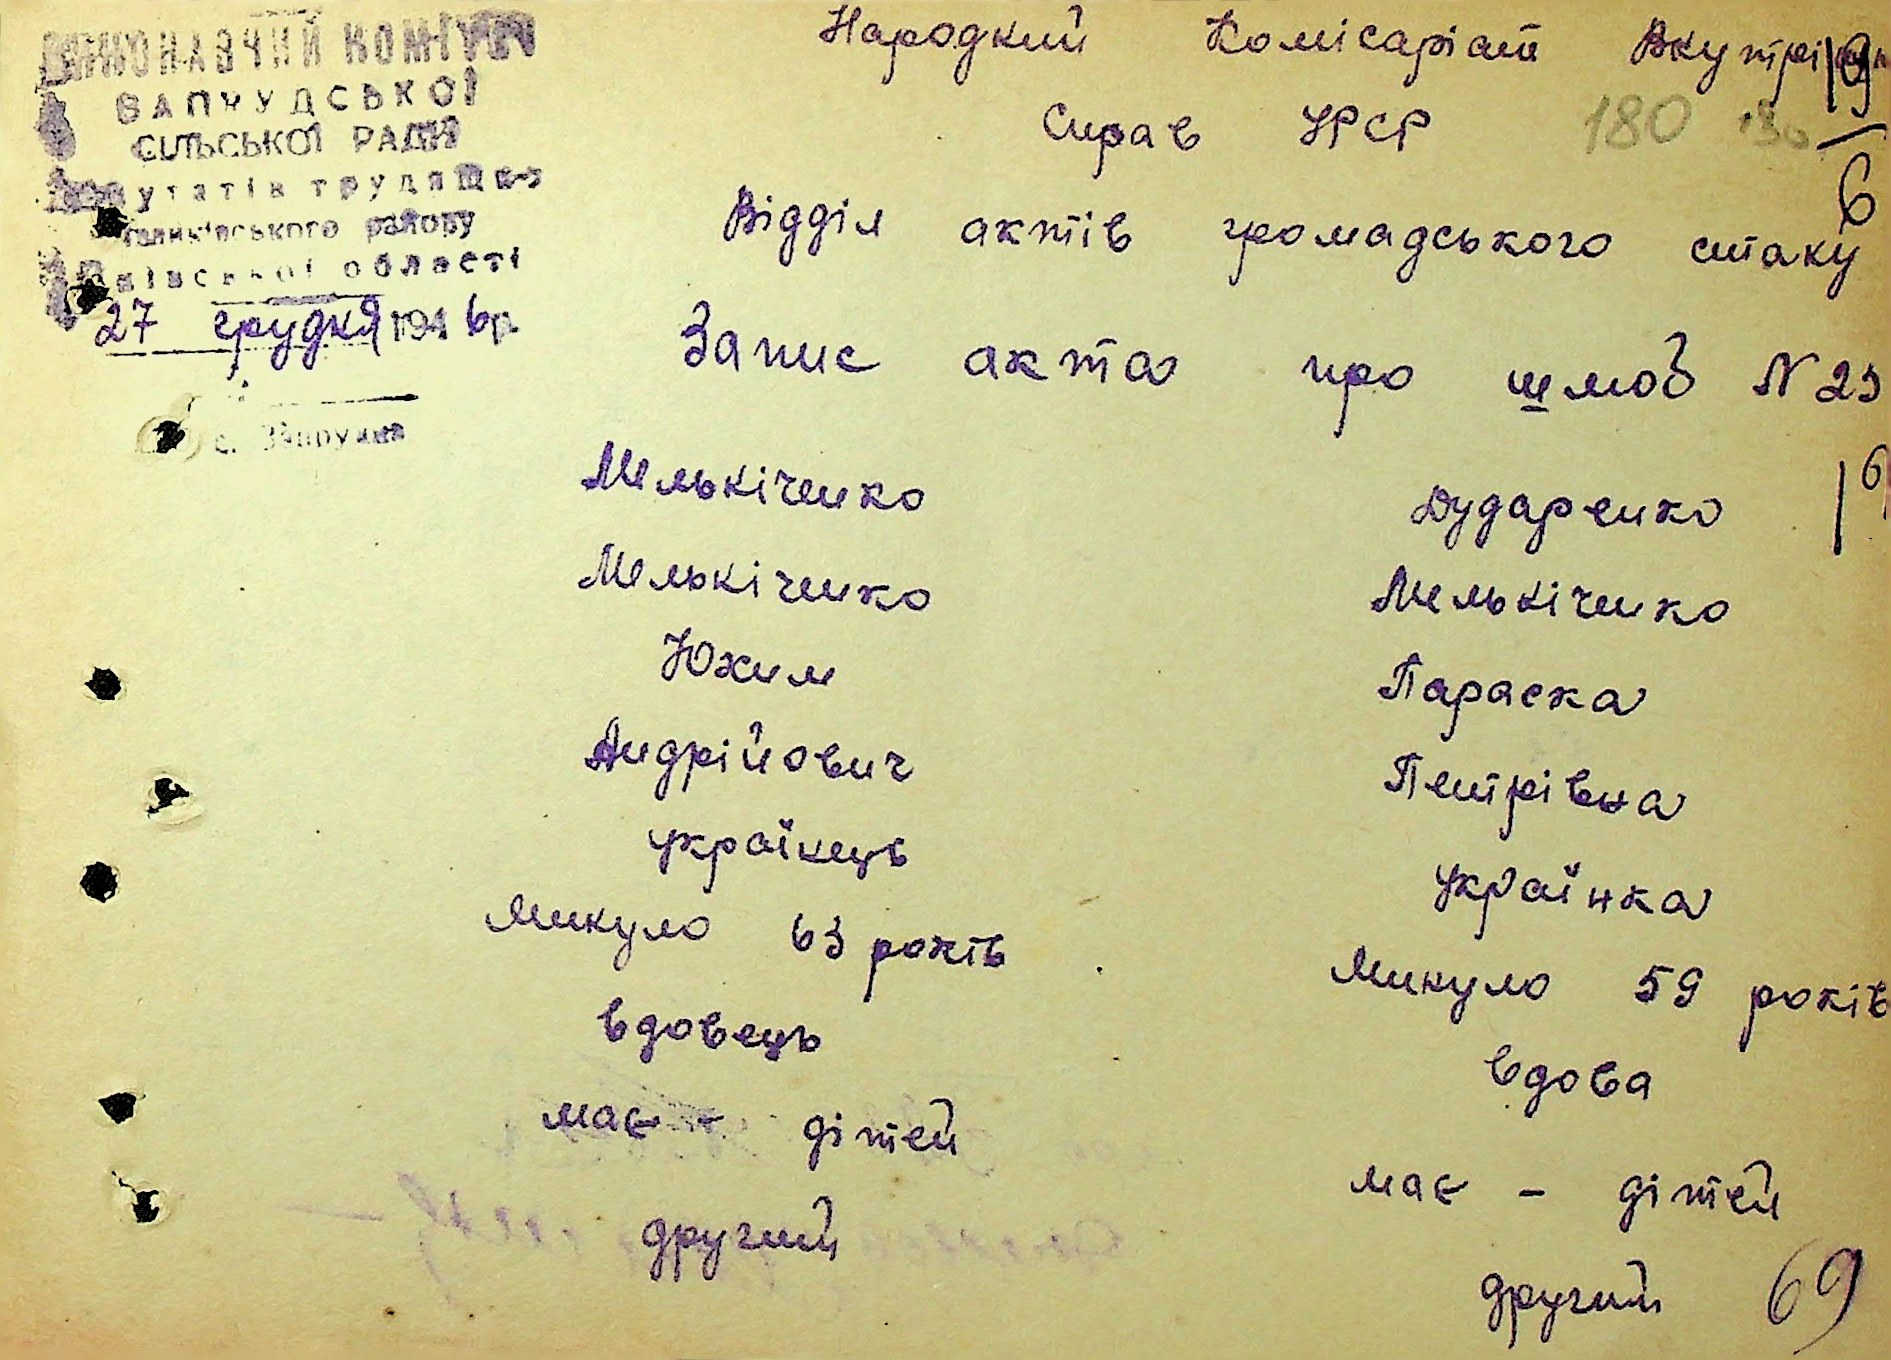 ВИКОНАВЧИЙ КОМІТЕТ
ЗАПРУДСЬКОЇ
СІЛЬСЬКОЇ РАДИ
депутатів трудящих
району
Київської області
27 грудня 1946 р.
с. Запрудка
Народний Комісаріат Внутрішніх
Справ УРСР
180
19
6
Відділ актів громадського стану
Запис акта про шлюб N 23
Мельніченко Дударенко
Мельніченко Мельніченко
Юхим Параска
Андрійович Петрівна
українець українка
Минуло 63 років Минуло 59 років
вдовець вдова
має - дітей має - дітей
другий другий
69